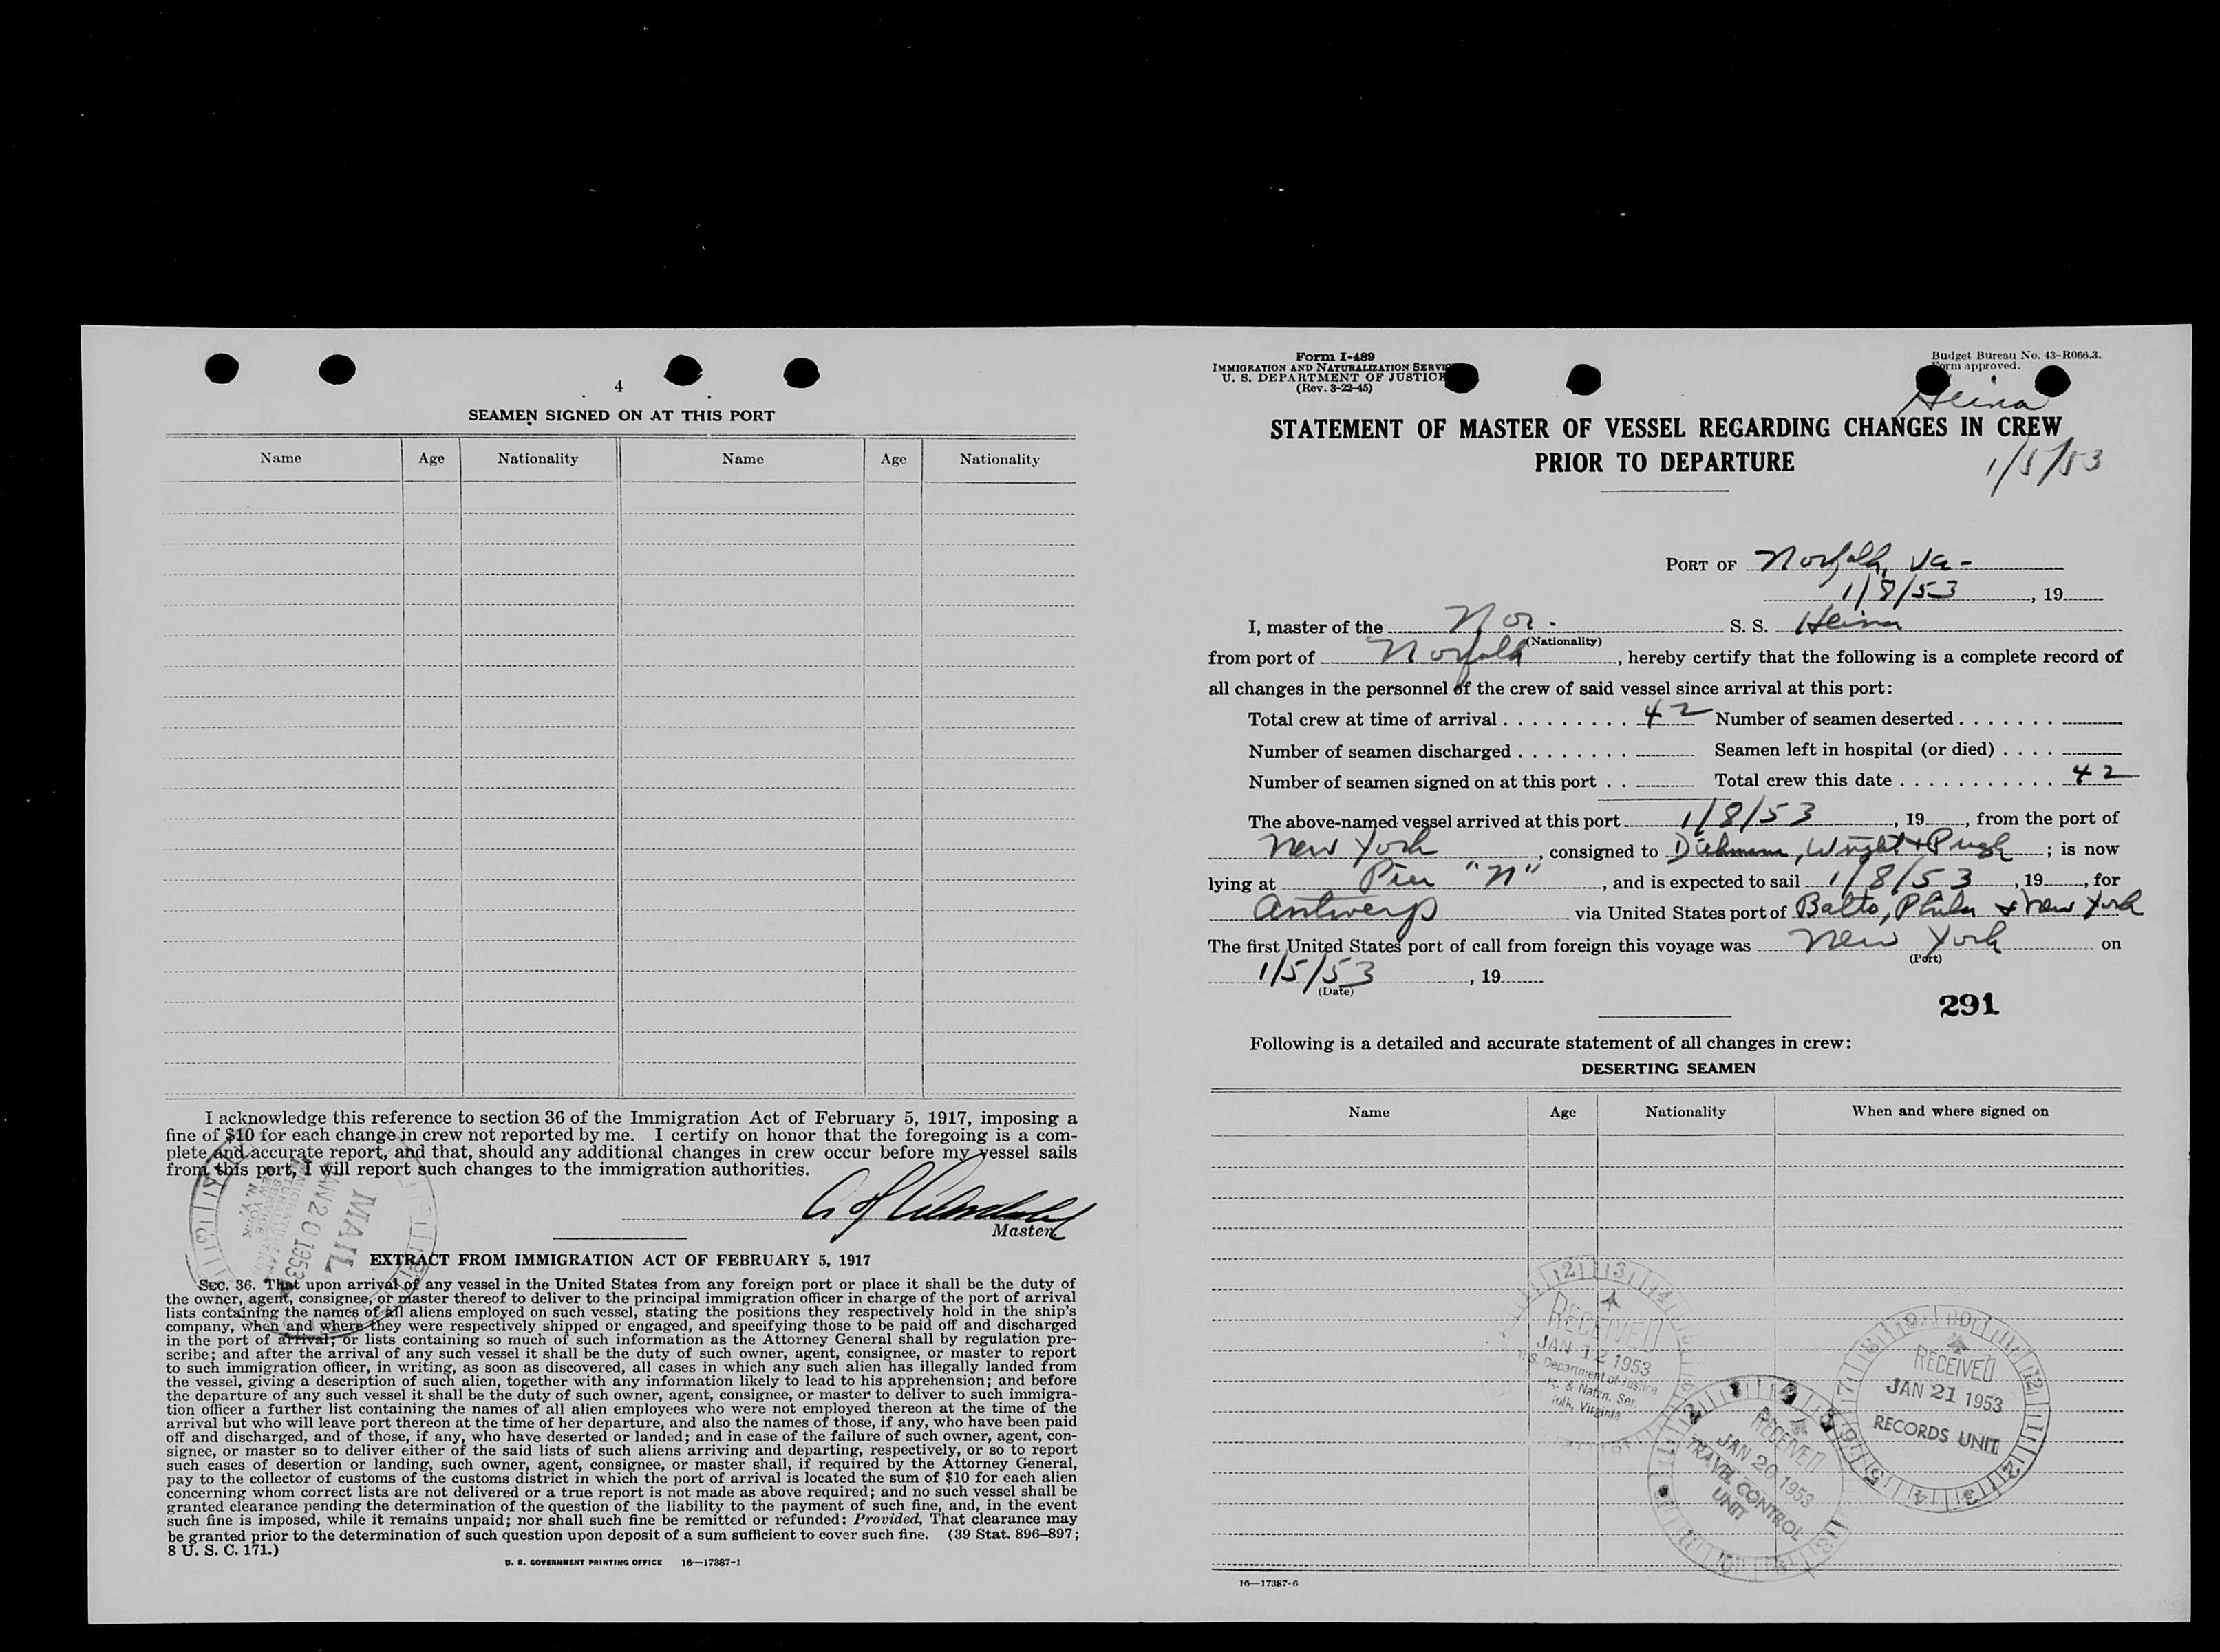 4
SEAMEN SIGNED ON AT THIS PORT
Name Age Nationality Name Age Nationality
I acknowledge this reference to section 36 of the Immigration Act of February 5, 1917, imposing a
fine of $10 for each change in crew not reported by me. I certify on honor that the foregoing is a com-
plete and accurate report, and that, should any additional changes in crew occur before my vessel sails
from this port, I will report such changes to the immigration authorities.
Master.
MAIL
JAN 20 1953
NEW YORK
N. Y.
EXTRACT FROM IMMIGRATION ACT OF FEBRUARY 5, 1917
SEC. 36. That upon arrival of any vessel in the United States from any foreign port or place it shall be the duty of
the owner, agent, consignee, or master thereof to deliver to the principal immigration officer in charge of the port of arrival
lists containing the names of all aliens employed on such vessel, stating the positions they respectively hold in the ship's
company, when and where they were respectively shipped or engaged, and specifying those to be paid off and discharged
in the port of arrival; or lists containing so much of such information as the Attorney General shall by regulation pre-
scribe; and after the arrival of any such vessel it shall be the duty of such owner, agent, consignee, or master to report
to such immigration officer, in writing, as soon as discovered, all cases in which any such alien has illegally landed from
the vessel, giving a description of such alien, together with any information likely to lead to his apprehension; and before
the departure of any such vessel it shall be the duty of such owner, agent, consignee, or master to deliver to such immigra-
tion officer a further list containing the names of all alien employees who were not employed thereon at the time of the
arrival but who will leave port thereon at the time of her departure, and also the names of those, if any, who have been paid
off and discharged, and of those, if any, who have deserted or landed; and in case of the failure of such owner, agent, con-
signee, or master so to deliver either of the said lists of such aliens arriving and departing, respectively, or so to report
such cases of desertion or landing, such owner, agent, consignee, or master shall, if required by the Attorney General,
pay to the collector of customs of the customs district in which the port of arrival is located the sum of $10 for each alien
concerning whom correct lists are not delivered or a true report is not made as above required; and no such vessel shall be
granted clearance pending the determination of the question of the liability to the payment of such fine, and, in the event
such fine is imposed, while it remains unpaid; nor shall such fine be remitted or refunded: Provided, That clearance may
be granted prior to the determination of such question upon deposit of a sum sufficient to cover such fine. (39 Stat. 896–897;
8 U. S. C. 171.)
U. S. GOVERNMENT PRINTING OFFICE 16—17387-1
Form I-489
IMMIGRATION AND NATURALIZATION SERVICE
U. S. DEPARTMENT OF JUSTICE
(Rev. 3-22-45)
Budget Bureau No. 43-R066.3.
Form approved.
Heina
STATEMENT OF MASTER OF VESSEL REGARDING CHANGES IN CREW
PRIOR TO DEPARTURE
1/5/53
PORT OF Norfolk, Va-
1/8/53, 19
I, master of the Nor. S. S. Heina
(Nationality)
from port of Norfolk, hereby certify that the following is a complete record of
all changes in the personnel of the crew of said vessel since arrival at this port:
Total crew at time of arrival . . . . . . . . . 42 Number of seamen deserted . . . . . . .
Number of seamen discharged . . . . . . . . Seamen left in hospital (or died) . . . .
Number of seamen signed on at this port . . Total crew this date . . . . . . . . . . . . 42
The above-named vessel arrived at this port 1/8/53, 19, from the port of
New York, consigned to Diehmann, Wright + Pugh; is now
lying at Pier "N", and is expected to sail 1/8/53, 19, for
Antwerp via United States port of Balto, Phila + New York
The first United States port of call from foreign this voyage was New York on
(Port)
1/5/53, 19
(Date)
291
Following is a detailed and accurate statement of all changes in crew:
DESERTING SEAMEN
Name Age Nationality When and where signed on
RECEIVED
JAN 12 1953
U.S. Department of Justice
& Natzn. Ser.
folk, Virginia
RECEIVED
JAN 20 1953
TRAVEL CONTROL
UNIT
RECEIVED
JAN 21 1953
RECORDS UNIT
16—17387-6